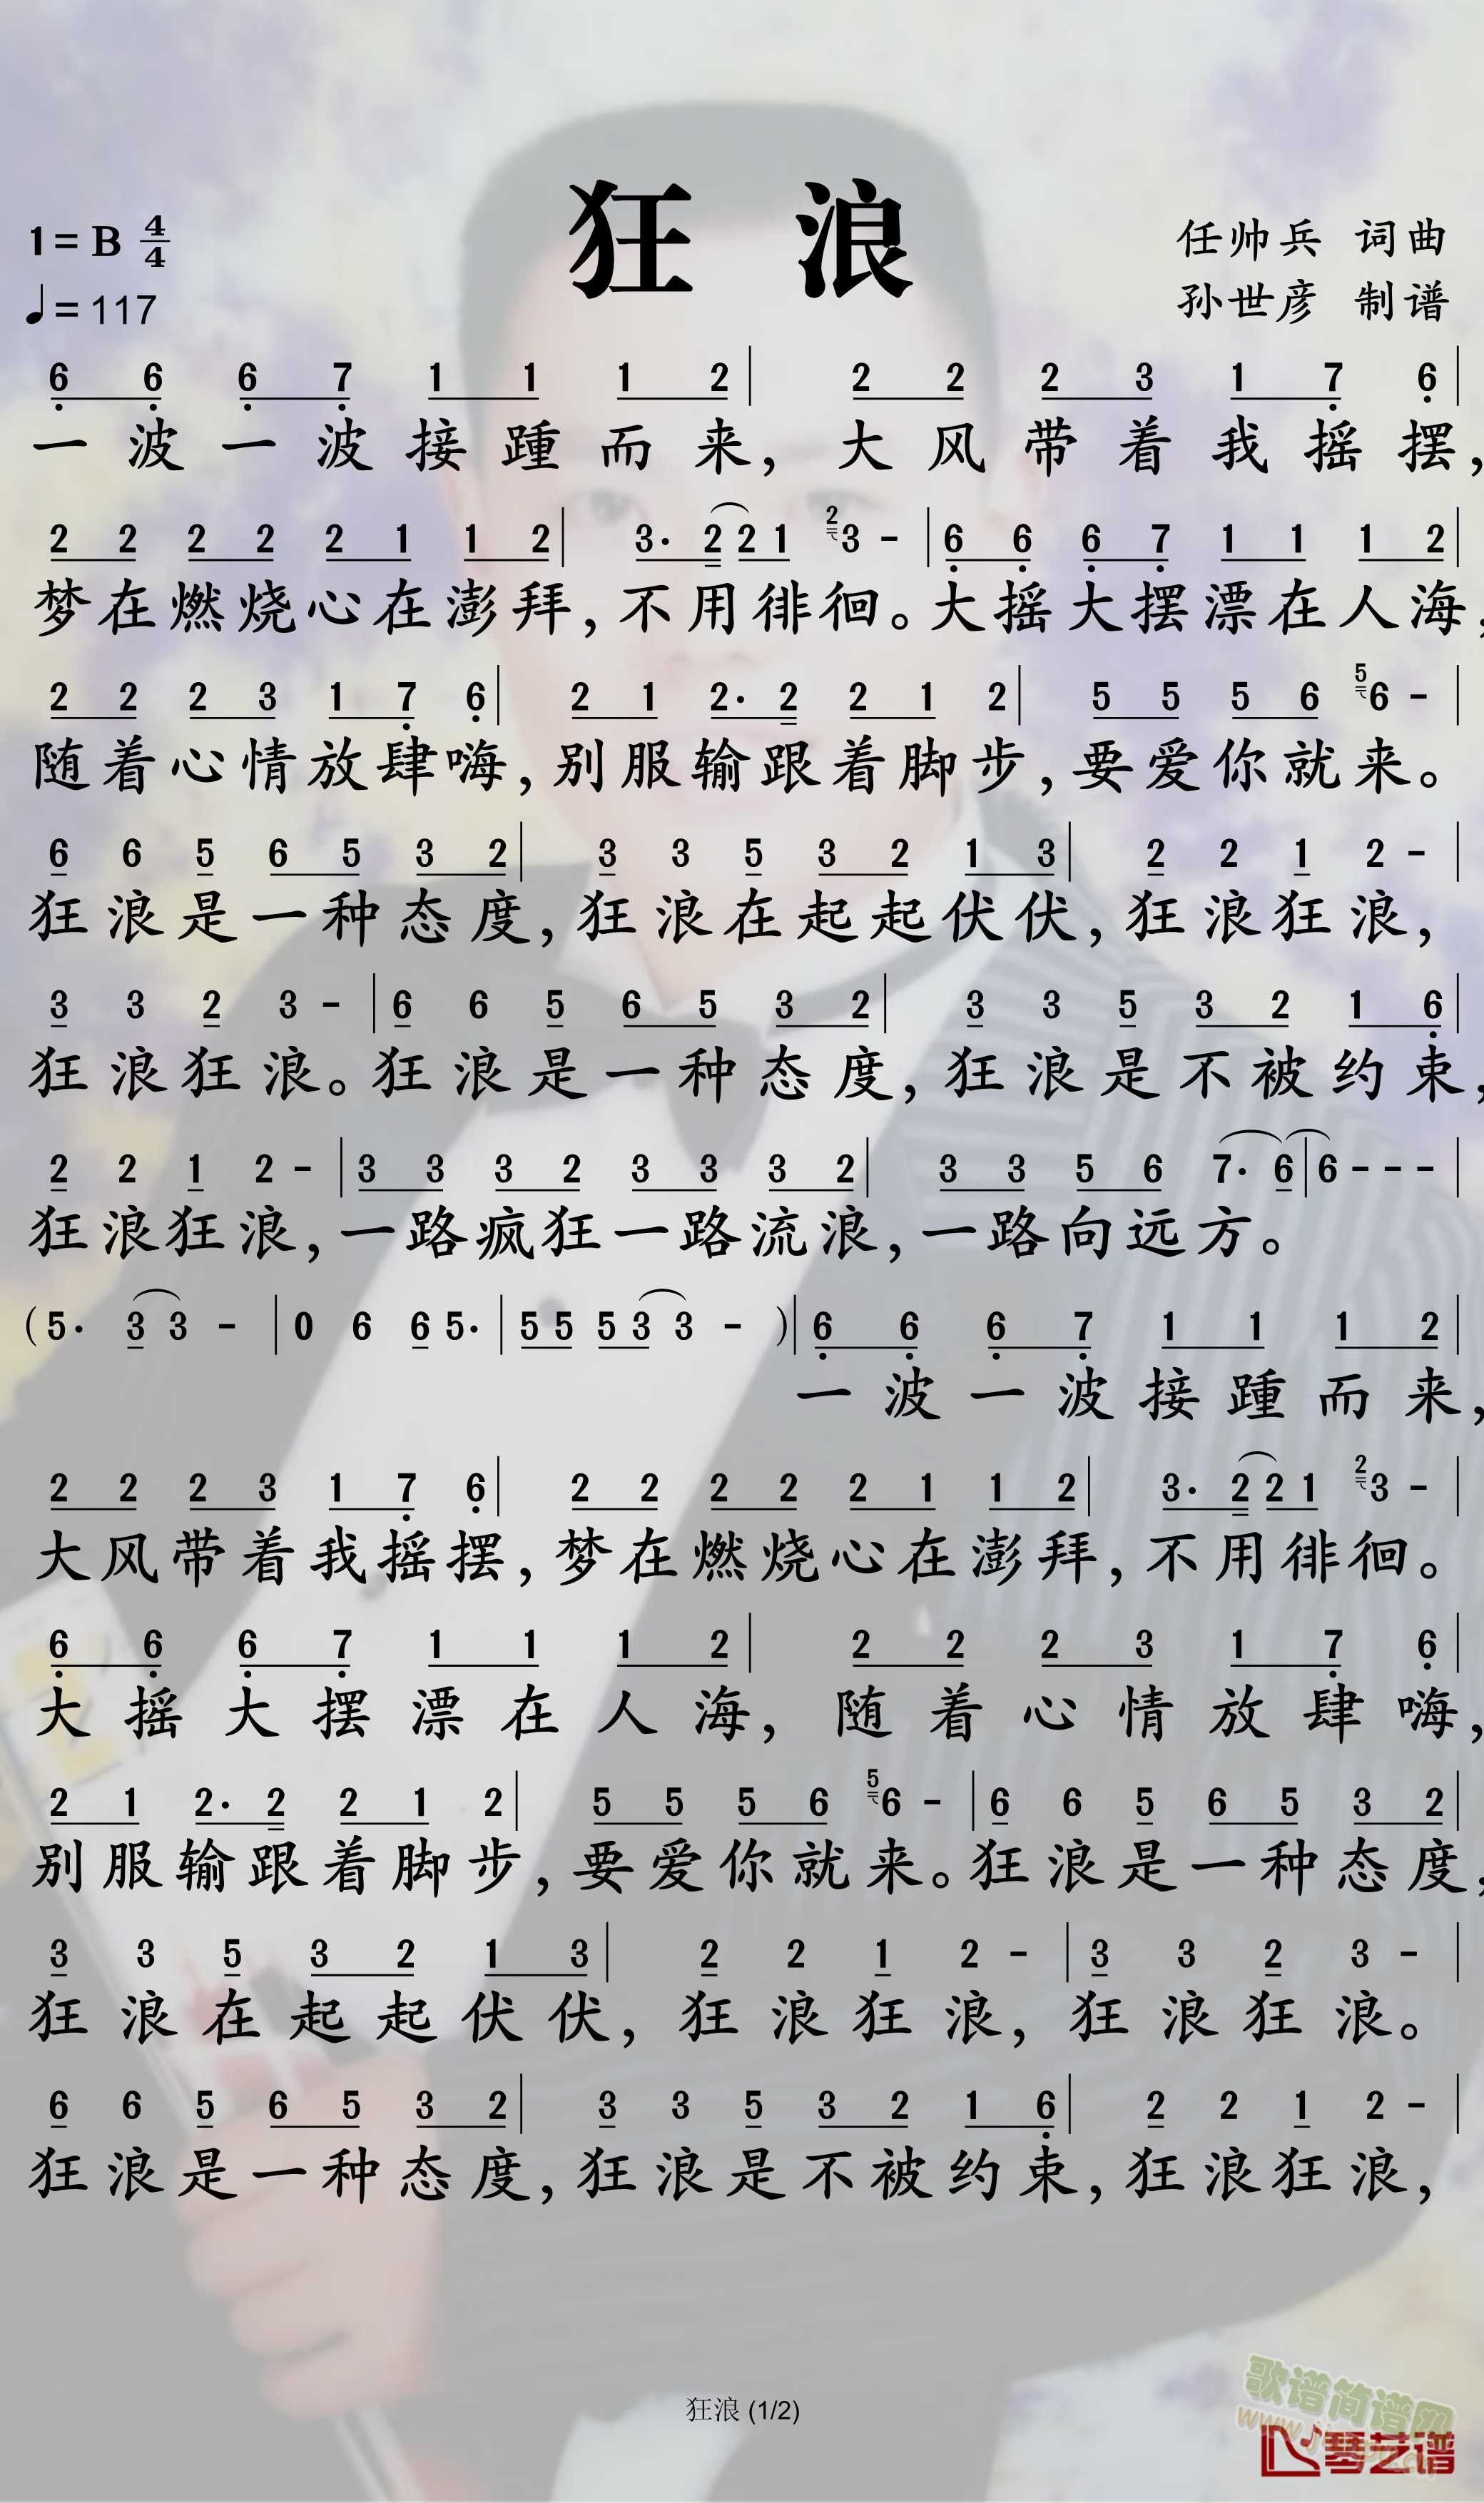 狂 浪
1=B 4/4
♩=117
任帅兵 词曲
孙世彦 制谱
6 6 6 7 1 1 1 2 | 2 2 2 3 1 7 6 |
一波一波接踵而来，大风带着我摇摆，
2 2 2 2 2 1 1 2 | 3· 2 2 1 2 3 - | 6 6 6 7 1 1 1 2 |
梦在燃烧心在澎拜，不用徘徊。大摇大摆漂在人海，
2 2 2 3 1 7 6 | 2 1 2· 2 2 1 2 | 5 5 5 6 5 6 - |
随着心情放肆嗨，别服输跟着脚步，要爱你就来。
6 6 5 6 5 3 2 | 3 3 5 3 2 1 3 | 2 2 1 2 - |
狂浪是一种态度，狂浪在起起伏伏，狂浪狂浪，
3 3 2 3 - | 6 6 5 6 5 3 2 | 3 3 5 3 2 1 6 |
狂浪狂浪。狂浪是一种态度，狂浪是不被约束，
2 2 1 2 - | 3 3 3 2 3 3 3 2 | 3 3 5 6 7· 6 | 6 - - - |
狂浪狂浪，一路疯狂一路流浪，一路向远方。
( 5· 3 3 - | 0 6 6 5· | 5 5 5 3 3 - ) | 6 6 6 7 1 1 1 2 |
一波一波接踵而来，
2 2 2 3 1 7 6 | 2 2 2 2 2 1 1 2 | 3· 2 2 1 2 3 - |
大风带着我摇摆，梦在燃烧心在澎拜，不用徘徊。
6 6 6 7 1 1 1 2 | 2 2 2 3 1 7 6 |
大摇大摆漂在人海，随着心情放肆嗨，
2 1 2· 2 2 1 2 | 5 5 5 6 5 6 - | 6 6 5 6 5 3 2 |
别服输跟着脚步，要爱你就来。狂浪是一种态度，
3 3 5 3 2 1 3 | 2 2 1 2 - | 3 3 2 3 - |
狂浪在起起伏伏，狂浪狂浪，狂浪狂浪。
6 6 5 6 5 3 2 | 3 3 5 3 2 1 6 | 2 2 1 2 - |
狂浪是一种态度，狂浪是不被约束，狂浪狂浪，
狂浪 (1/2)
歌谱简谱网
琴艺谱